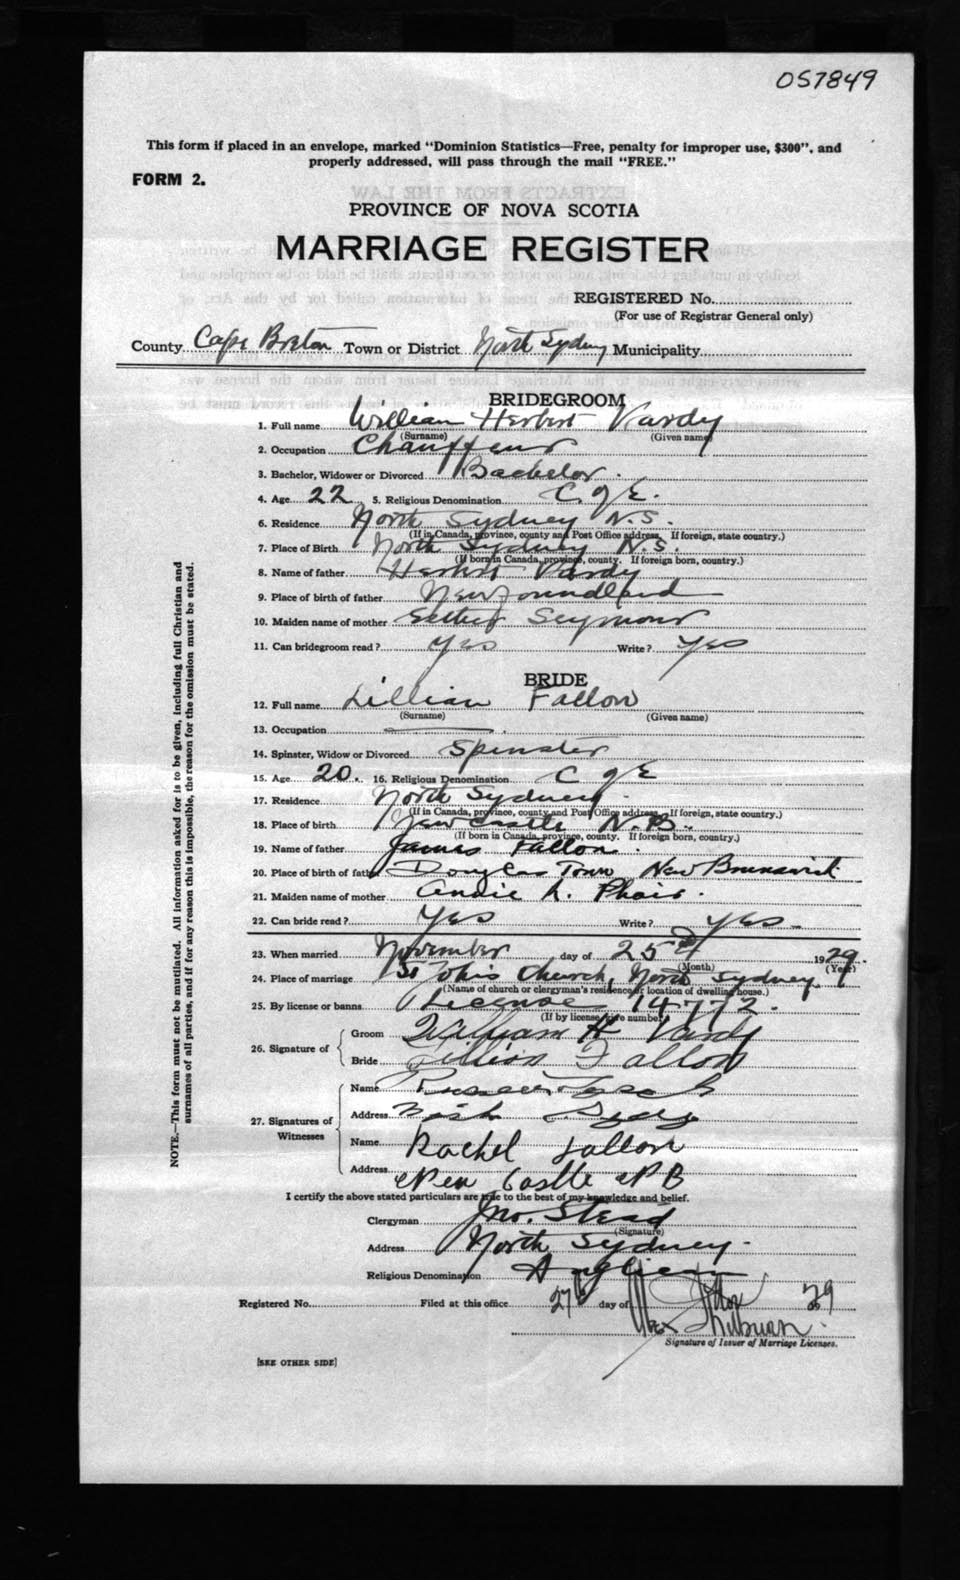 057849
This form if placed in an envelope, marked "Dominion Statistics—Free, penalty for improper use, $300", and
properly addressed, will pass through the mail "FREE."
FORM 2.
PROVINCE OF NOVA SCOTIA
MARRIAGE REGISTER
REGISTERED No.
(For use of Registrar General only)
County Cape Breton Town or District North Sydney Municipality
BRIDEGROOM
1. Full name William Herbert Vardy
(Surname) (Given name)
2. Occupation Chauffeur
3. Bachelor, Widower or Divorced Bachelor.
4. Age 22 5. Religious Denomination C of E.
6. Residence North Sydney N.S.
(If in Canada, province, county and Post Office address. If foreign, state country.)
7. Place of Birth North Sydney N.S.
(If born in Canada, province, county. If foreign born, country.)
8. Name of father Herbert Vardy
9. Place of birth of father Newfoundland
10. Maiden name of mother Esther Seymour
11. Can bridegroom read? Yes Write? Yes
BRIDE
12. Full name Lillian Fallon
(Surname) (Given name)
13. Occupation
14. Spinster, Widow or Divorced Spinster
15. Age 20. 16. Religious Denomination C of E
17. Residence North Sydney.
(If in Canada, province, county and Post Office address. If foreign, state country.)
18. Place of birth Newcastle N.B.
(If born in Canada, province, county. If foreign born, country.)
19. Name of father James Fallon.
20. Place of birth of father Douglas Town New Brunswick
21. Maiden name of mother Annie L. Phair.
22. Can bride read? Yes Write? Yes
23. When married November day of 25th 1929.
(Month) (Year)
24. Place of marriage St Johns Church, North Sydney
(Name of church or clergyman's residence or location of dwelling house.)
25. By license or banns License 14772.
(If by license give number)
26. Signature of Groom William H Vardy
Bride Lillian Fallon
27. Signatures of Witnesses
Name
Address North Sydney
Name Rachel Fallon
Address New Castle N B
I certify the above stated particulars are true to the best of my knowledge and belief.
Clergyman Jno. Stead
(Signature)
Address North Sydney.
Religious Denomination Anglican
Registered No. Filed at this office 27th day of Nov 29
Signature of Issuer of Marriage Licenses.
[SEE OTHER SIDE]
NOTE.—This form must not be mutilated. All information asked for is to be given, including full Christian and
surnames of all parties, and if for any reason this is impossible, the reason for the omission must be stated.